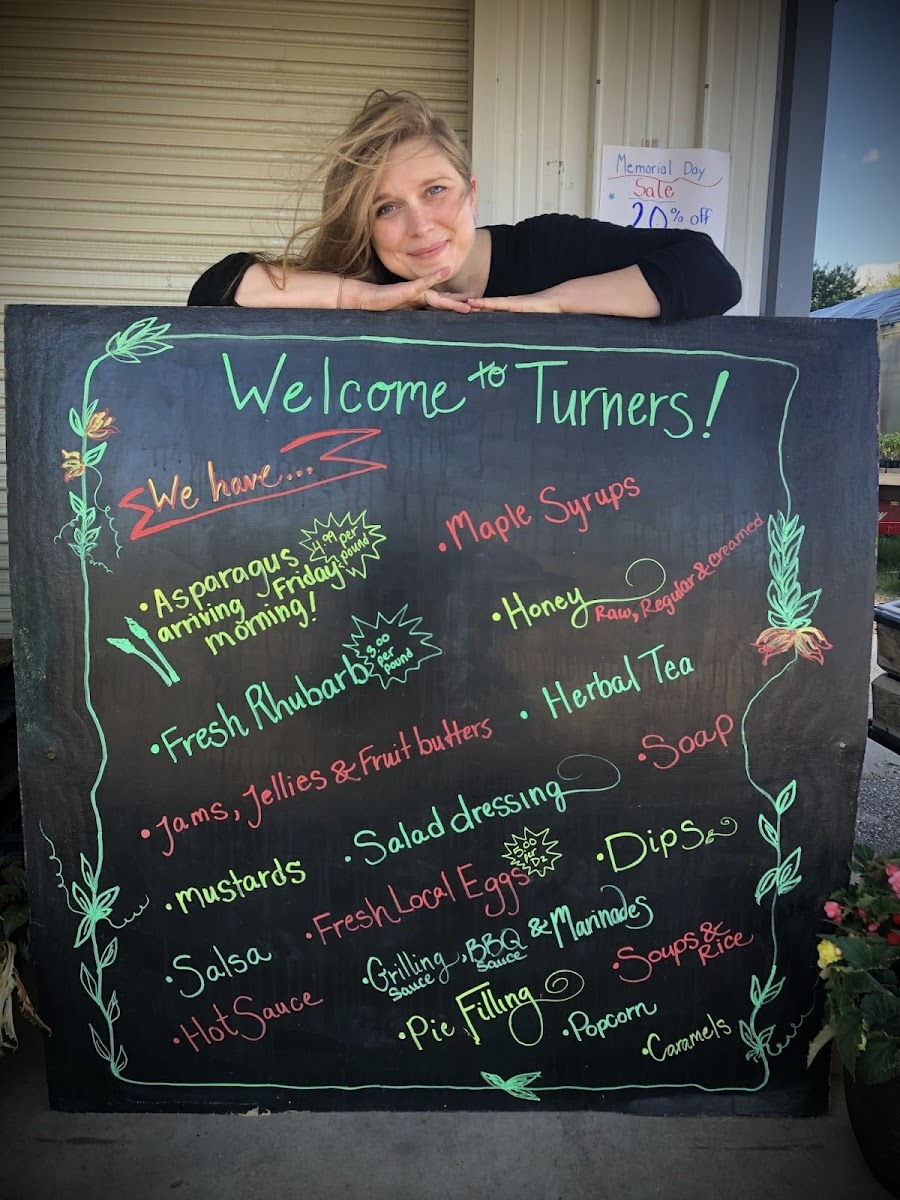 Memorial Day
Sale
20% off
Welcome to Turners!
We have...
• Asparagus
arriving Friday
morning!
4.99
per
pound
• Maple Syrups
• Honey
Raw, Regular & Creamed
• Fresh Rhubarb
3.00
per
pound
• Herbal Tea
• Jams, Jellies & Fruit butters
• Soap
• Salad dressing
• mustards
• Dips
• Fresh Local Eggs
5.00
per
Dz
• Salsa
• Grilling Sauce, BBQ Sauce & Marinades
• Soups &
Rice
• Hot Sauce
• Pie Filling
• Popcorn
• Caramels